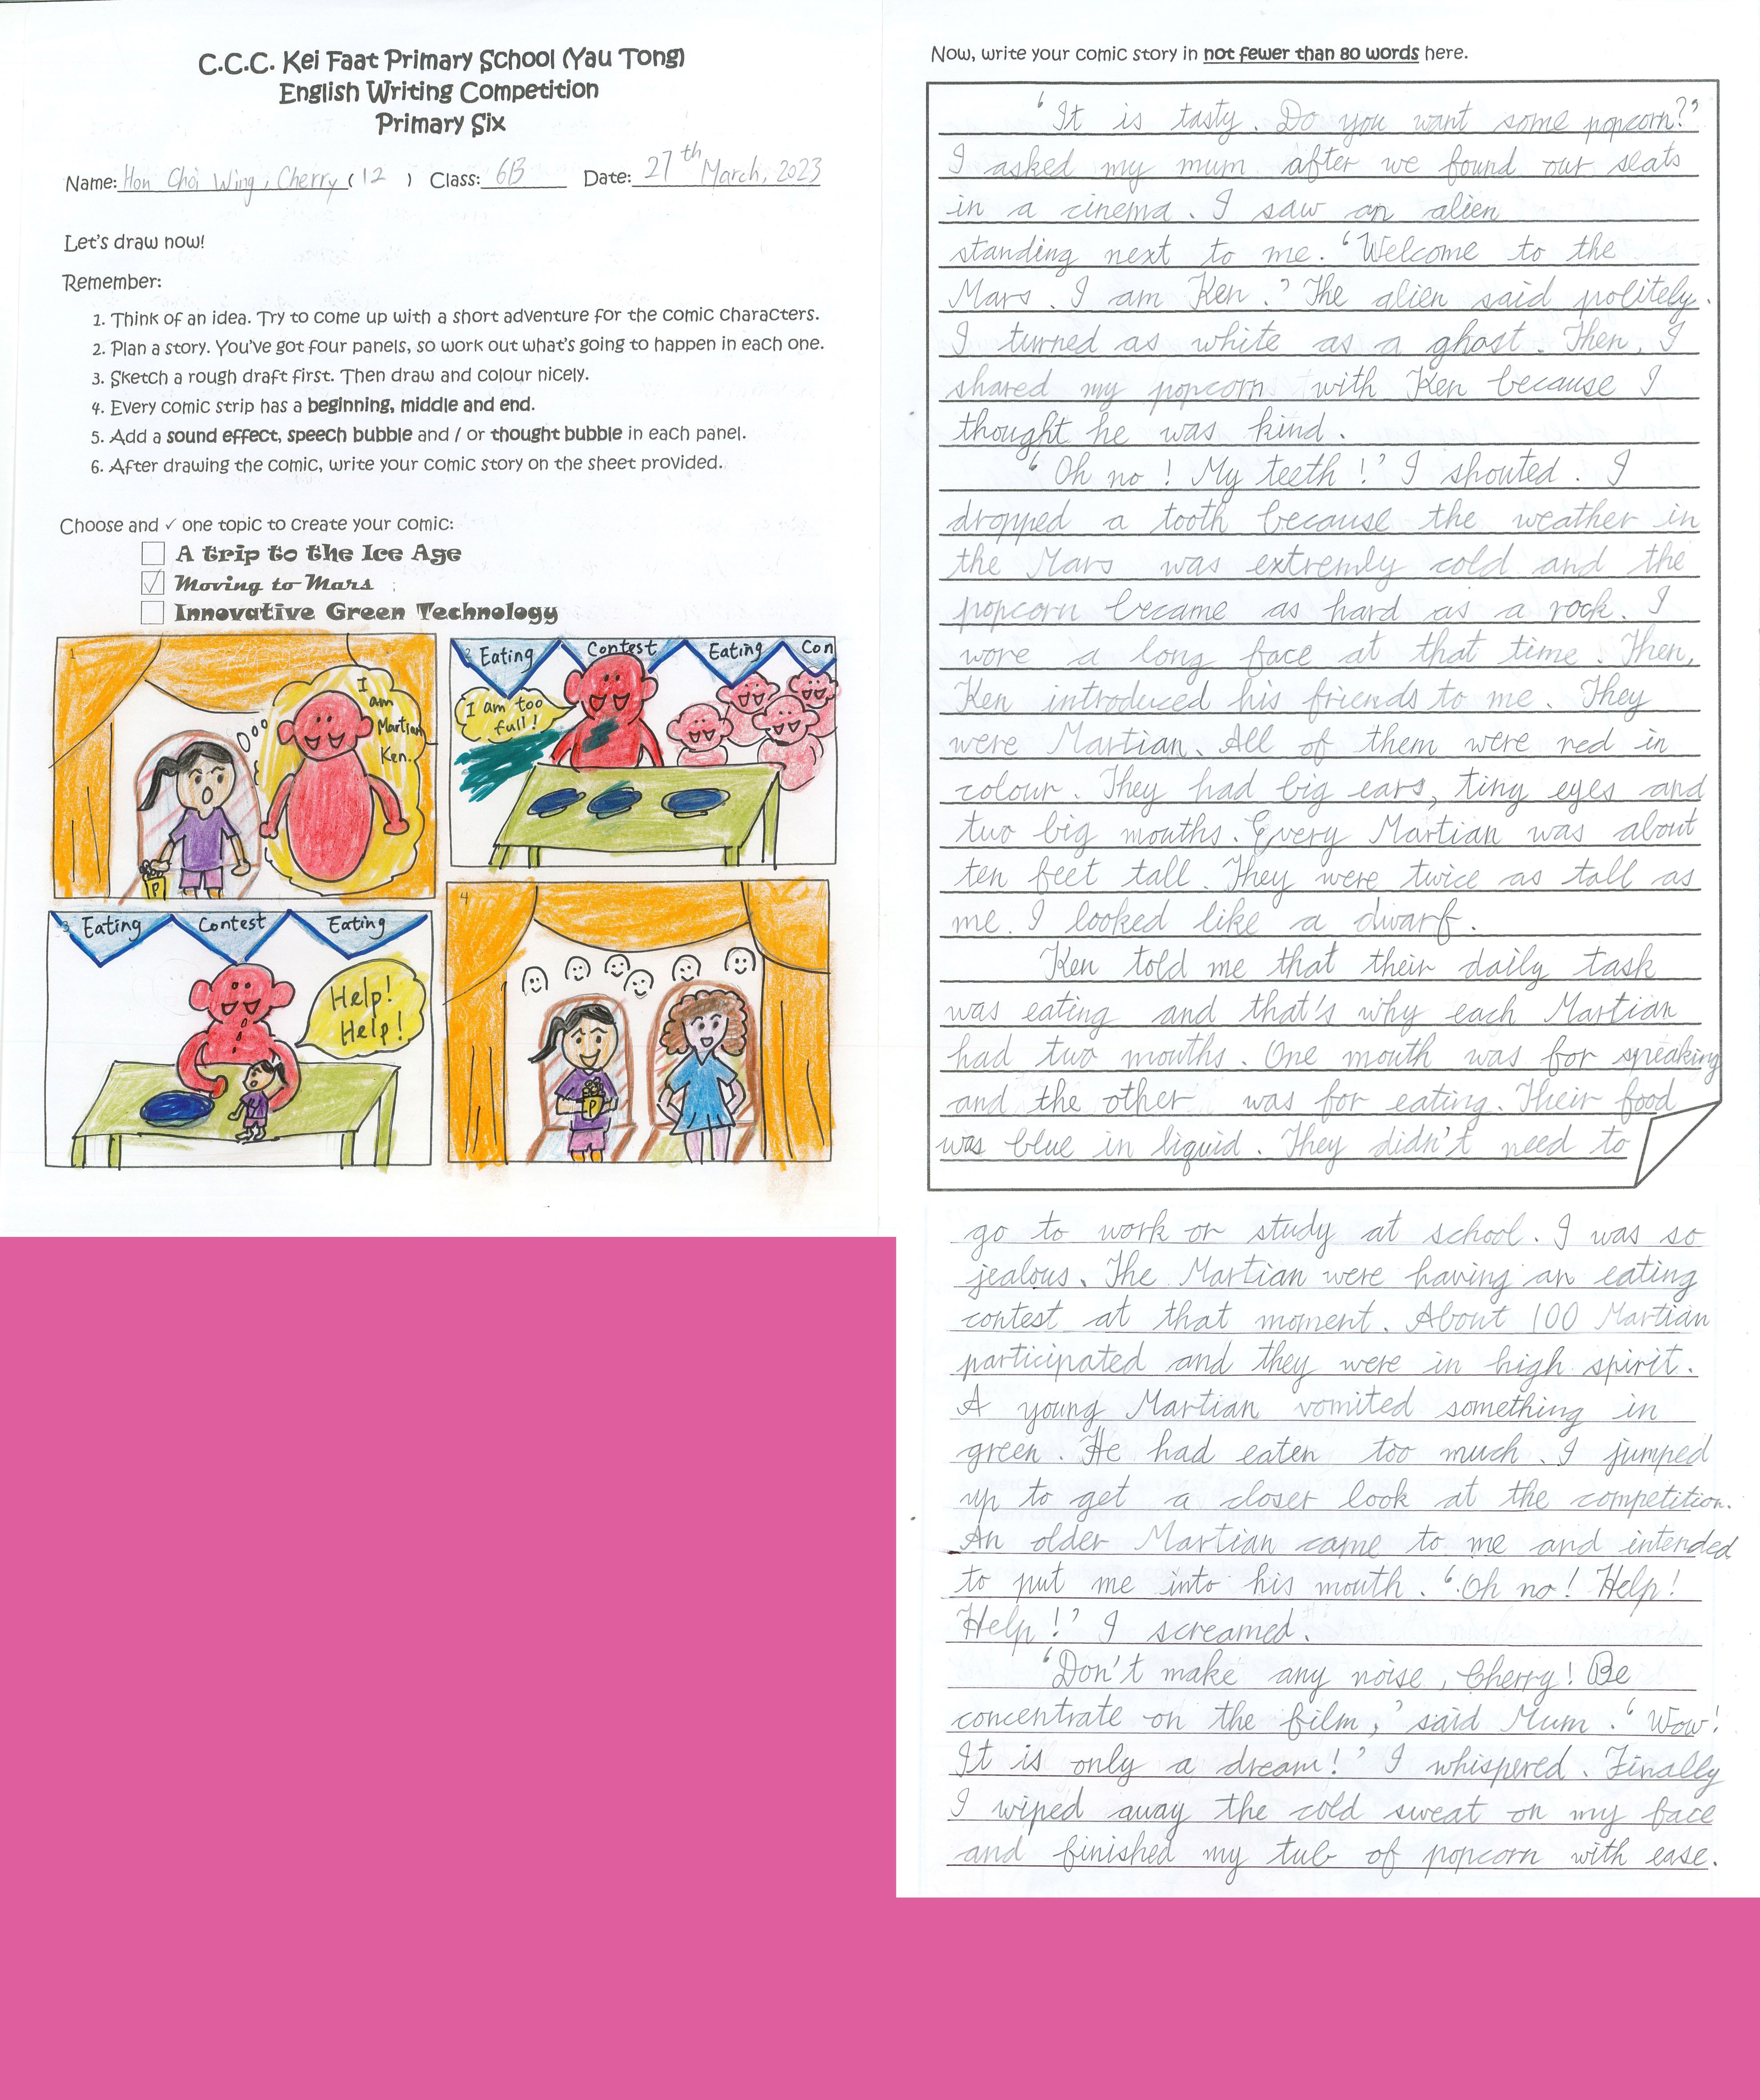 C.C.C. Kei Faat Primary School (Yau Tong)
English Writing Competition
Primary Six
Name: Hon Choi Wing, Cherry (12) Class: 6B Date: 27th March, 2023
Let's draw now!
Remember:
1. Think of an idea. Try to come up with a short adventure for the comic characters.
2. Plan a story. You've got four panels, so work out what's going to happen in each one.
3. Sketch a rough draft first. Then draw and colour nicely.
4. Every comic strip has a beginning, middle and end.
5. Add a sound effect, speech bubble and / or thought bubble in each panel.
6. After drawing the comic, write your comic story on the sheet provided.
Choose and ✓ one topic to create your comic:
A trip to the Ice Age
✓ Moving to Mars
Innovative Green Technology
1
I
am
Martian
Ken.
2 Eating Contest Eating Con
I am too
full!
P
3 Eating Contest Eating
Help!
Help!
4
P
Now, write your comic story in not fewer than 80 words here.
'It is tasty. Do you want some popcorn?'
I asked my mum after we found our seats
in a cinema. I saw an alien
standing next to me. 'Welcome to the
Mars. I am Ken.' The alien said politely.
I turned as white as a ghost. Then, I
shared my popcorn with Ken because I
thought he was kind.
'Oh no! My teeth!' I shouted. I
dropped a tooth because the weather in
the Mars was extremly cold and the
popcorn became as hard as a rock. I
wore a long face at that time. Then,
Ken introduced his friends to me. They
were Martian. All of them were red in
colour. They had big ears, tiny eyes and
two big mouths. Every Martian was about
ten feet tall. They were twice as tall as
me. I looked like a dwarf.
Ken told me that their daily task
was eating and that's why each Martian
had two mouths. One mouth was for speaking
and the other was for eating. Their food
was blue in liquid. They didn't need to
go to work or study at school. I was so
jealous. The Martian were having an eating
contest at that moment. About 100 Martian
participated and they were in high spirit.
A young Martian vomited something in
green. He had eaten too much. I jumped
up to get a closer look at the competition.
An older Martian came to me and intended
to put me into his mouth. 'Oh no! Help!
Help!' I screamed.
'Don't make any noise, Cherry! Be
concentrate on the film,' said Mum. 'Wow!
It is only a dream!' I whispered. Finally
I wiped away the cold sweat on my face
and finished my tub of popcorn with ease.